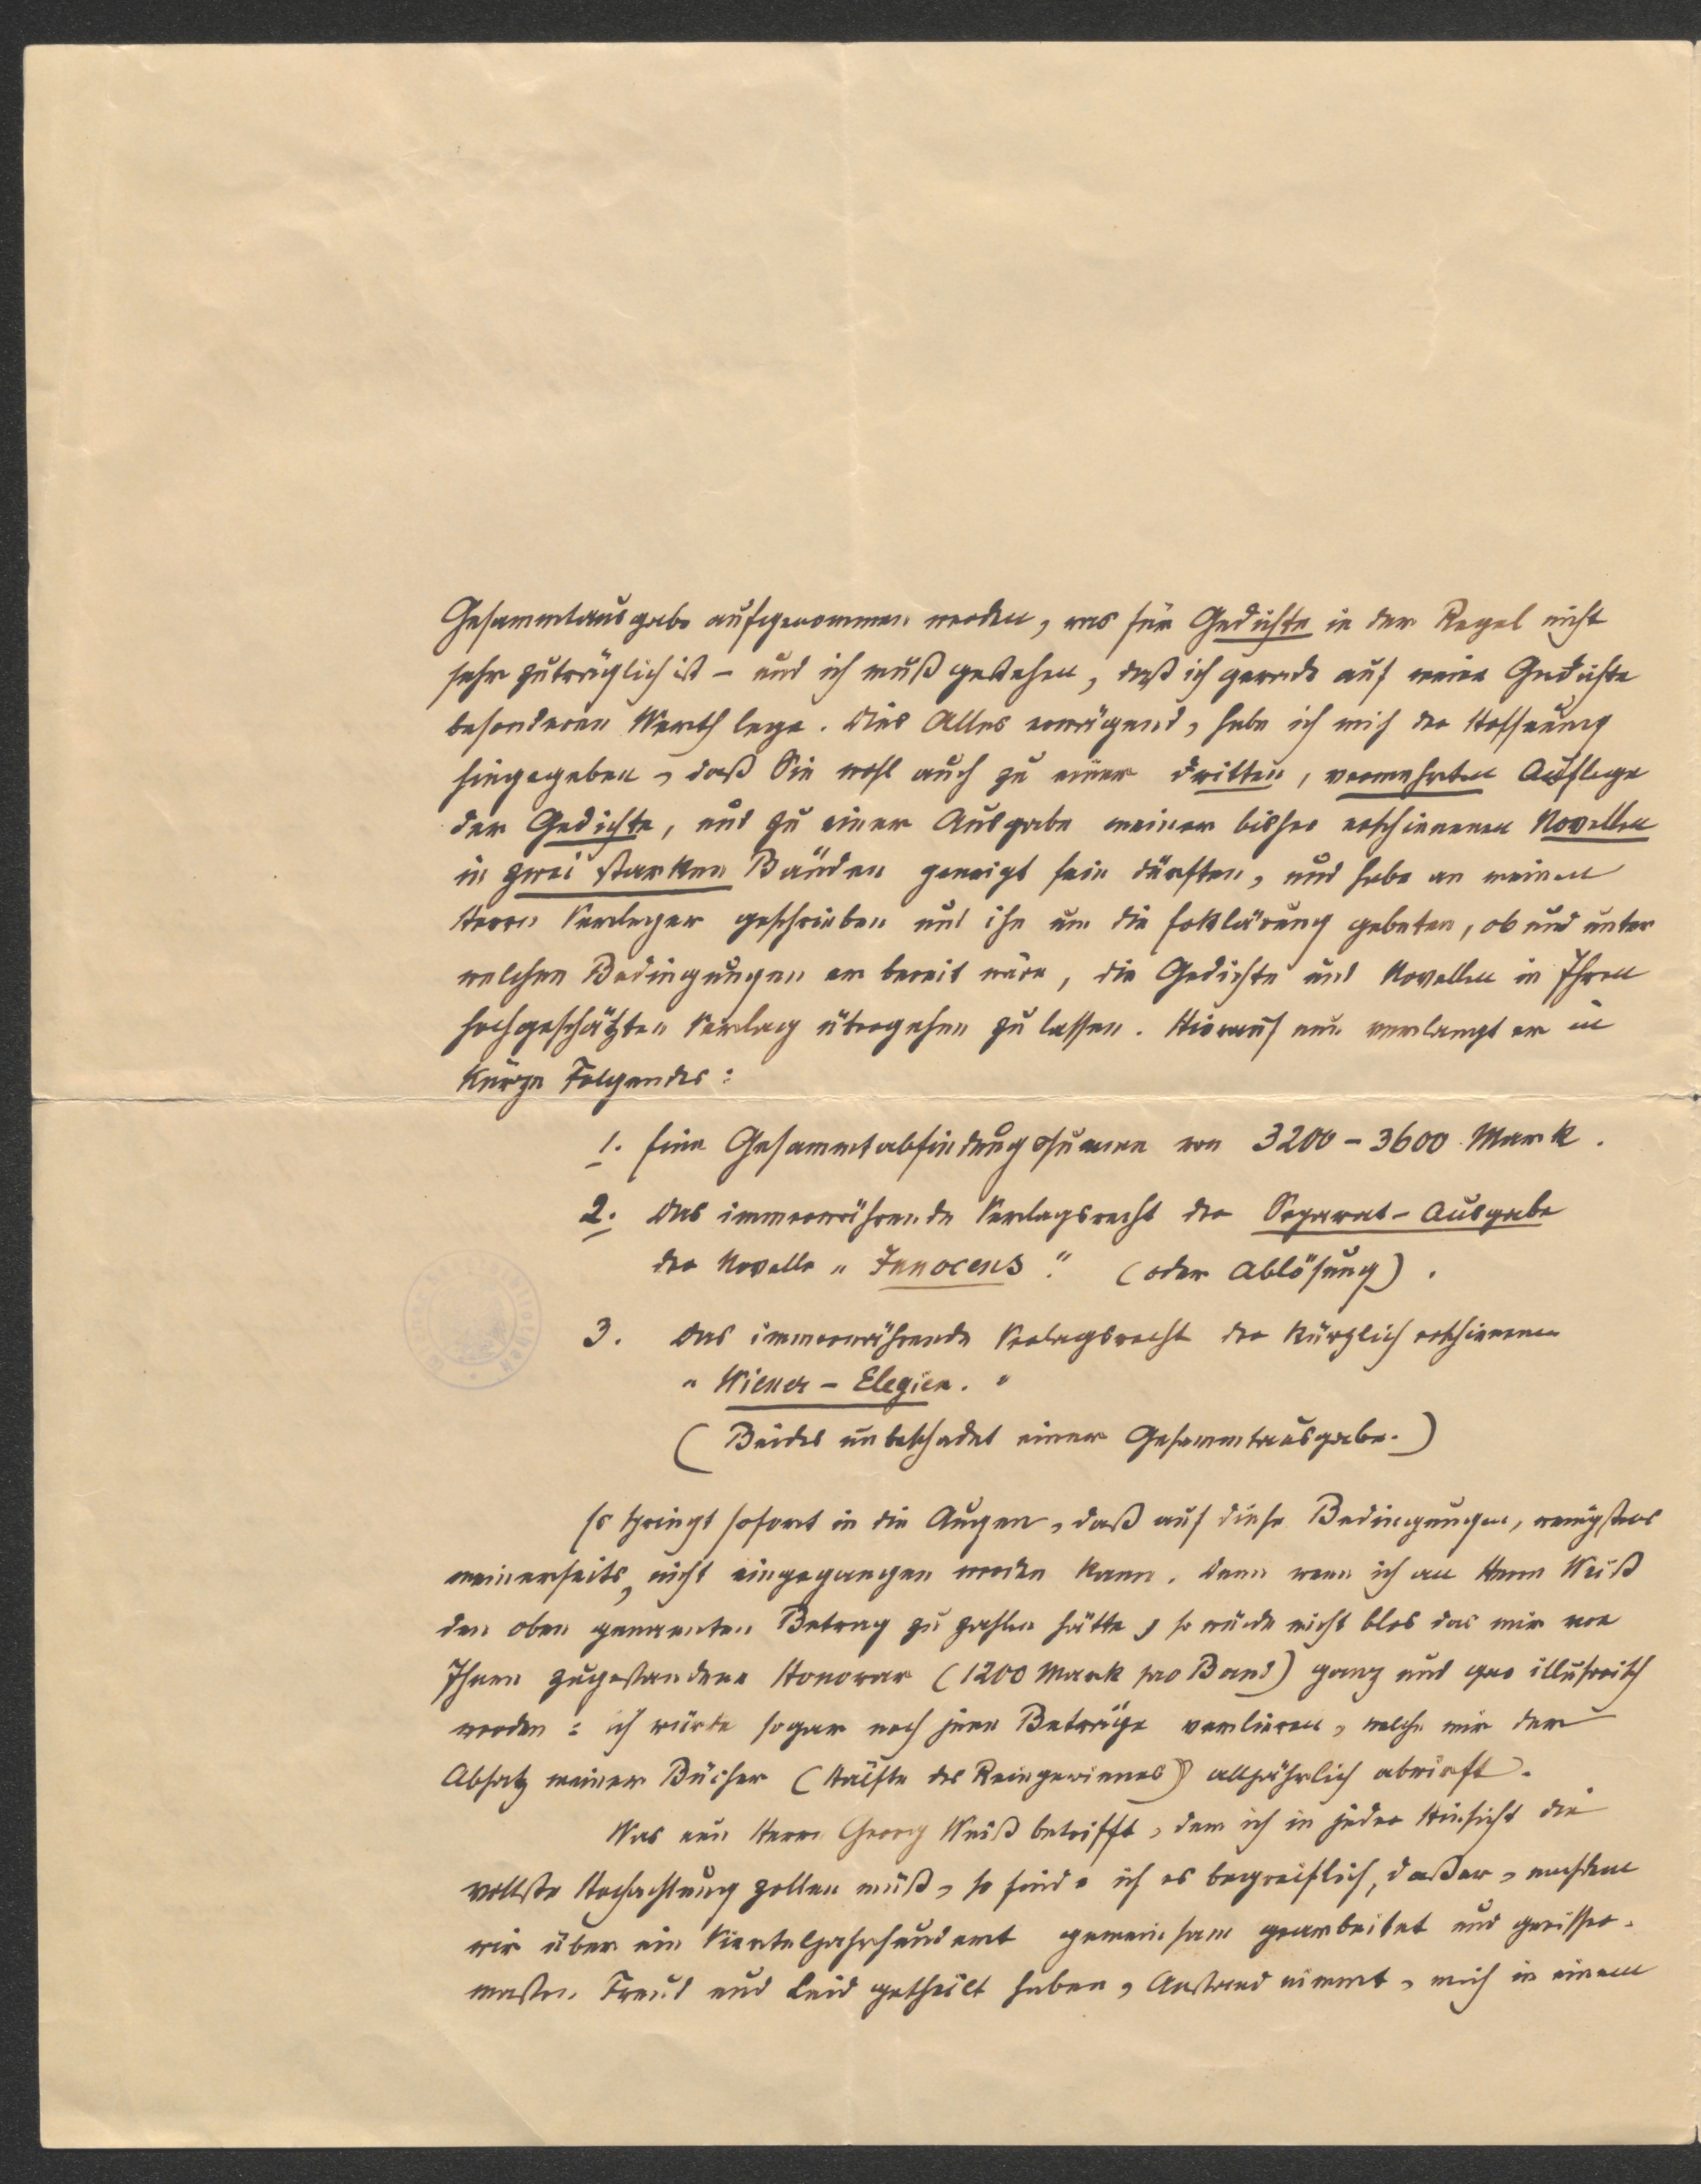 Gesammtausgabe aufgenommen werden, was für Gedichte in der Regel nicht
sehr zuträglich ist – und ich muß gestehen, daß ich gerade auf meine Gedichte
besonderen Werth lege. Dies Alles erwägend, habe ich mich der Hoffnung
hingegeben, daß Sie wohl auch zu einer dritten, vermehrten Auflage
der Gedichte, und zu einer Ausgabe meiner bisher erschienenen Novellen
in zwei starken Bänden geneigt sein dürften, und habe an meinen
Herrn Verleger geschrieben und ihn um die Erklärung gebeten, ob und unter
welchen Bedingungen er bereit wäre, die Gedichte und Novellen in Ihren
hochgeschätzten Verlag übergehen zu lassen. Hierauf nun verlangt er in
Kürze Folgendes:
1. Eine Gesammtabfindungssumme von 3200 – 3600 Mark.
2. Das immerwährende Verlagsrecht der Separat-Ausgabe
der Novelle „Innocens“. (oder Ablösung).
3. Das immerwährende Verlagsrecht der kürzlich erschienenen
„Wiener-Elegien.“
(Beides unbeschadet einer Gesammtausgabe.)
Es springt sofort in die Augen, daß auf diese Bedingungen, wenigstens
meinerseits, nicht eingegangen werden kann. Denn wenn ich an Herrn Weiß
den oben genannten Betrag zu zahlen hätte, so würde nicht blos das mir von
Ihnen zugestandene Honorar (1200 Mark pro Band) ganz und gar illusorisch
werden: ich würde sogar noch jene Beträge verlieren, welche mir der
Absatz meiner Bücher (Hälfte des Reingewinnes) alljährlich abwirft.
Was nun Herrn Georg Weiß betrifft, dem ich in jeder Hinsicht die
vollste Hochachtung zollen muß, so finde ich es begreiflich, daß er, nachdem
wir über ein Vierteljahrhundert gemeinsam gearbeitet und gewisser-
maßen Freud und Leid getheilt haben, Anstand nimmt, mich in einem